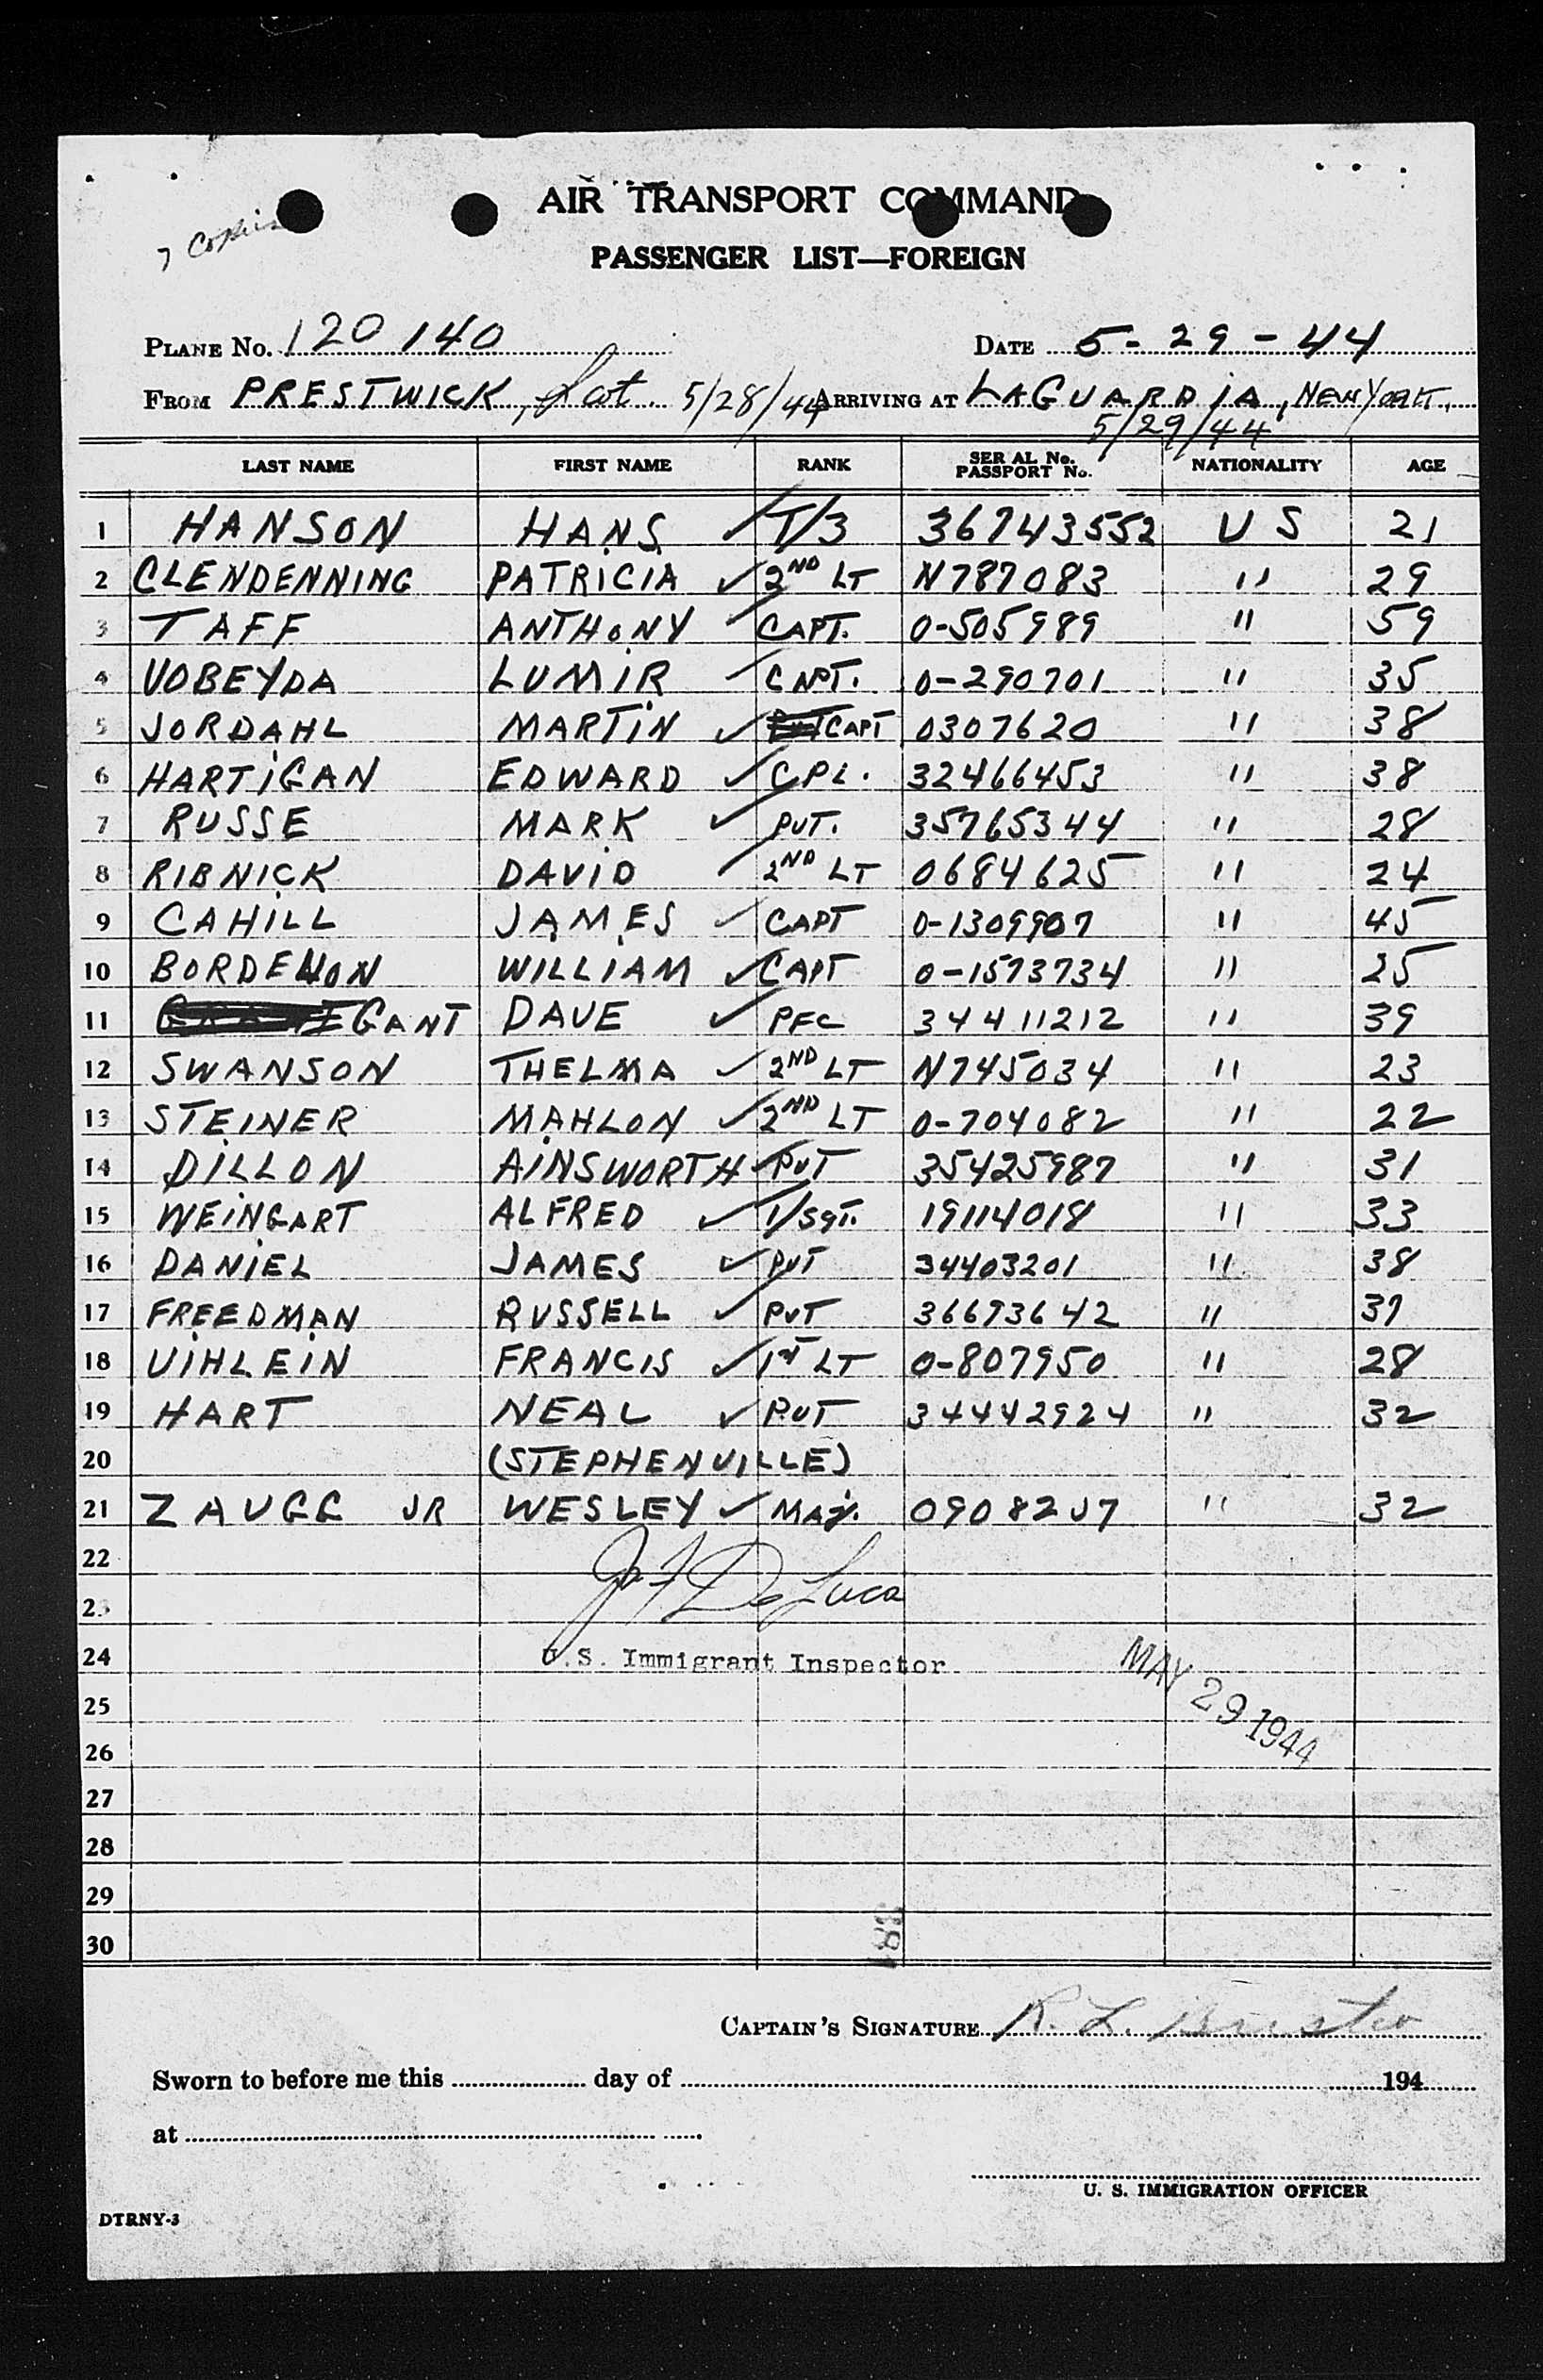 AIR TRANSPORT COMMAND
7 Copies
PASSENGER LIST—FOREIGN
PLANE NO. 120 140 DATE 5-29-44
FROM PRESTWICK, Scot. 5/28/44 ARRIVING AT LAGUARDIA, NEW YORK,
5/29/44
LAST NAME FIRST NAME RANK SER AL No. PASSPORT No. NATIONALITY AGE
1 HANSON HANS T/3 36743552 US 21
2 CLENDENNING PATRICIA 2ND LT N787083 " 29
3 TAFF ANTHONY CAPT. 0-505989 " 59
4 VOBEYDA LUMIR CAPT. 0-290701 " 35
5 JORDAHL MARTIN CAPT 0307620 " 38
6 HARTIGAN EDWARD CPL. 32466453 " 38
7 RUSSE MARK PVT. 35765344 " 28
8 RIBNICK DAVID 2ND LT 0684625 " 24
9 CAHILL JAMES CAPT 0-1309907 " 45
10 BORDELON WILLIAM CAPT 0-1573734 " 25
11 GANT DAVE PFC 34411212 " 39
12 SWANSON THELMA 2ND LT N745034 " 23
13 STEINER MAHLON 2ND LT 0-704082 " 22
14 DILLON AINSWORTH PVT 35425987 " 31
15 WEINGART ALFRED 1/SGT. 19114018 " 33
16 DANIEL JAMES PVT 34403201 " 38
17 FREEDMAN RUSSELL PVT 36693642 " 37
18 UIHLEIN FRANCIS 1ST LT 0-807950 " 28
19 HART NEAL PVT 34442924 " 32
20 (STEPHENVILLE)
21 ZAUGG JR WESLEY MAJ. 0908207 " 32
22
23
Jo F De Luca
24 U.S. Immigrant Inspector
MAY 29 1944
25
26
27
28
29
30
CAPTAIN'S SIGNATURE R. L.
Sworn to before me this day of 194
at
U. S. IMMIGRATION OFFICER
DTRNY-3